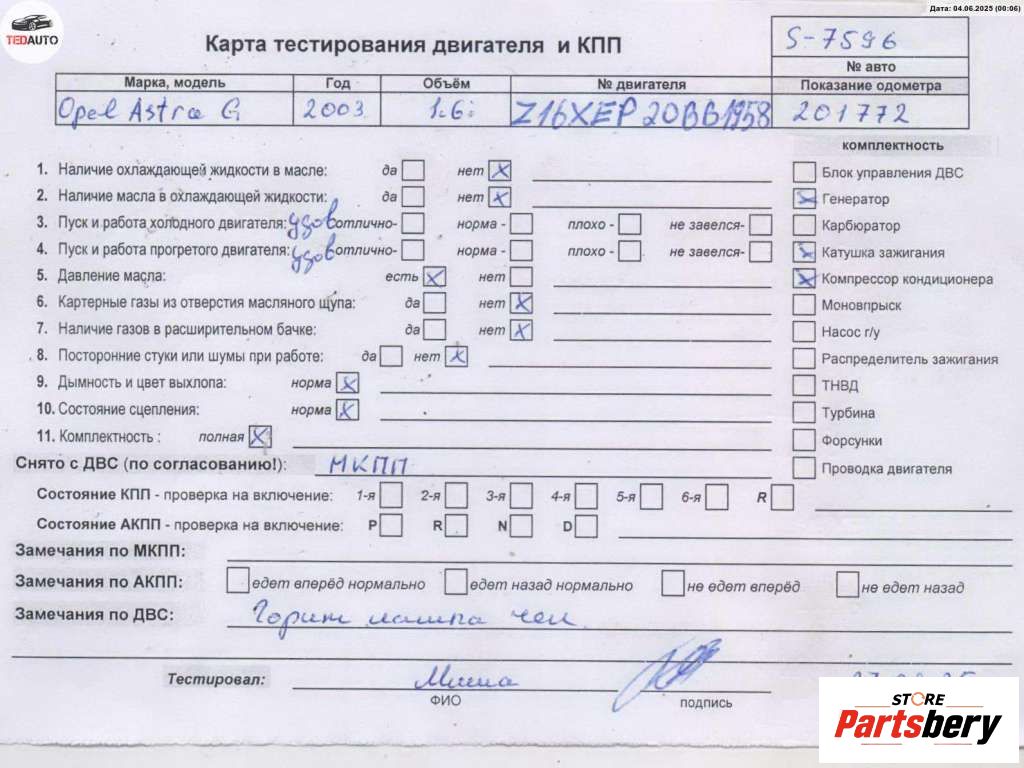 Дата: 04.06.2025 (00:06)
TEDAUTO
Карта тестирования двигателя и КПП
S-7596
№ авто
Марка, модель Год Объём № двигателя Показание одометра
Opel Astra G 2003 1.6i Z16XEP 20BB1958 201772
комплектность
1. Наличие охлаждающей жидкости в масле: да нет X
Блок управления ДВС
2. Наличие масла в охлаждающей жидкости: да нет X
X Генератор
3. Пуск и работа холодного двигателя: удов отлично- норма - плохо - не завелся-
Карбюратор
4. Пуск и работа прогретого двигателя: удов отлично- норма - плохо - не завелся-
X Катушка зажигания
5. Давление масла: есть X нет
X Компрессор кондиционера
6. Картерные газы из отверстия масляного щупа: да нет X
Моновпрыск
7. Наличие газов в расширительном бачке: да нет X
Насос г/у
8. Посторонние стуки или шумы при работе: да нет X
Распределитель зажигания
9. Дымность и цвет выхлопа: норма X
ТНВД
10. Состояние сцепления: норма X
Турбина
11. Комплектность : полная X
Форсунки
Снято с ДВС (по согласованию!): МКПП
Проводка двигателя
Состояние КПП - проверка на включение: 1-я 2-я 3-я 4-я 5-я 6-я R
Состояние АКПП - проверка на включение: P R N D
Замечания по МКПП:
Замечания по АКПП: едет вперёд нормально едет назад нормально не едет вперёд не едет назад
Замечания по ДВС: Горит лампа чек
Тестировал: Миша
ФИО подпись
STORE
Partsbery